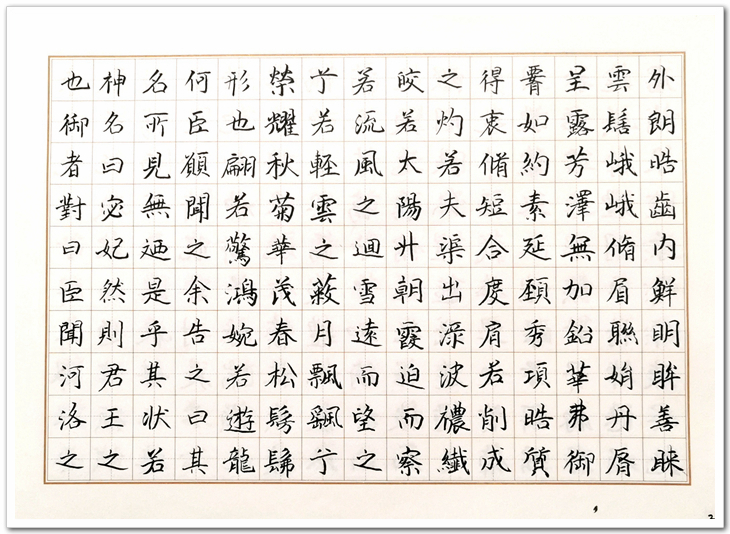 也御者對曰臣聞河洛之
神名曰宓妃然則君王之
名所見無迺是乎其状若
何臣願聞之余告之曰其
形也翩若驚鴻婉若遊龍
榮耀秋菊華茂春松髣髴
兮若輕雲之蔽月飄颻兮
若流風之迴雪遠而望之
皎若太陽升朝霞迫而察
之灼若夫渠出渌波襛纖
得衷脩短合度肩若削成
如約素延頸秀項皓質
呈露芳澤無加鉛華弗御
雲髻峨峨脩眉聯娟丹脣
外朗皓齒內鮮明眸善睞